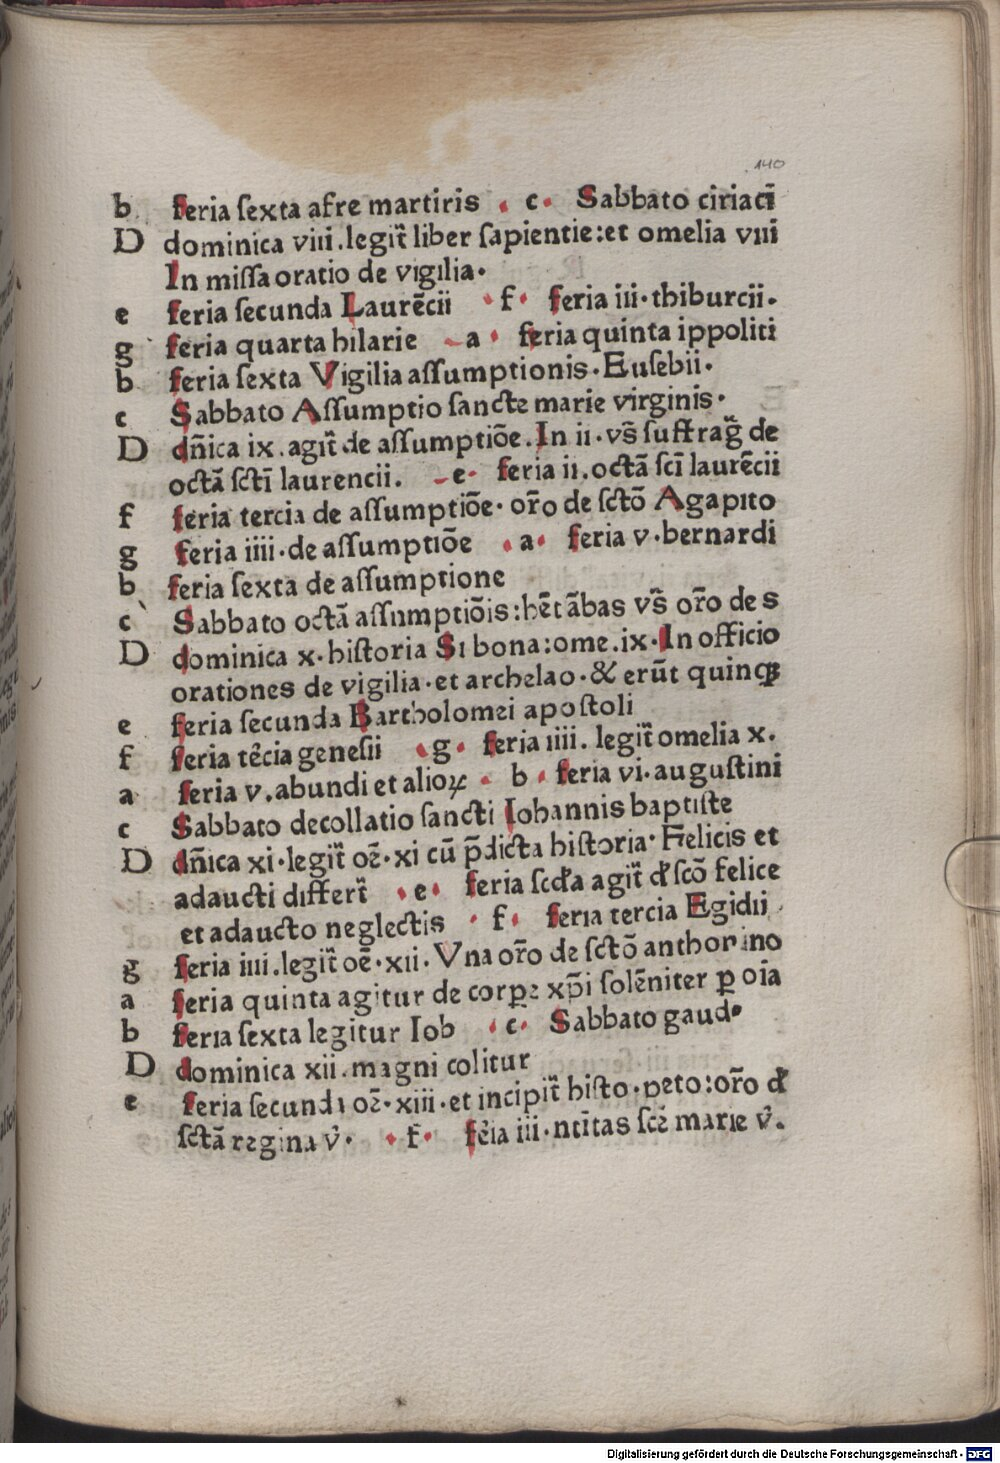 140
b feria ſexta afre martiris . c. Sabbato ciriaci̅
D dominica viii.legit̃ liber ſapientie:et omelia viii
In miſſa oratio de vigilia.
e feria ſecunda Laure̅cii . f. feria iii.thiburcii.
g feria quarta hilarie a. feria quinta ippoliti
b feria ſexta Vigilia aſſumptionis.Euſebii.
c Sabbato Aſſumptio ſancte marie virginis.
D dn̅ica ix.agit̃ de aſſumptio̅e.In ii.vs̅ ſuffrag̃ de
octa̅ ſcti̅ laurencii. e. feria ii.octa̅ ſci̅ laure̅cii
f feria tercia de aſſumptio̅e. or̅o de ſcto̅ Agapito
g feria iiii.de aſſumptio̅e . a. feria v.bernardi
b feria ſexta de aſſumptione
c Sabbato octa̅ aſſumptio̅is:he̅t a̅bas vs̅ or̅o de s
D dominica x.hiſtoria Si bona:ome.ix.In officio
orationes de vigilia.et archelao.& eru̅t quinqꝫ
e feria ſecunda Bartholomei apoſtoli
f feria te̅cia geneſii . g. feria iiii. legit̃ omelia x.
a feria v.abundi et alioꝝ . b . feria vi.auguſtini
c Sabbato decollatio ſancti Iohannis baptiſte
D dn̅ica xi.legit̃ oe̅.xi cu̅ p̅dicta hiſtoria. Felicis et
adaucti differt̃ . e. feria ſcd̾a agit̃ d̾ ſco̅ felice
et adaucto neglectis . f. feria tercia Egidii .
g feria iiii.legit̃ oe̅.xii.Vna or̅o de ſcto̅ anthonino
a feria quinta agitur de corpe xp̅i ſole̅niter ꝑ oi̅a
b feria ſexta legitur Iob . c. Sabbato gaud̾
D dominica xii.magni colitur
e feria ſecunda oe̅.xiii.et incipit̃ hiſto.peto:or̅o d̾
ſcta̅ regina v̾. . f. fe̅ia iii.nti̅tas ſce̅ marie v̾.
Digitalisierung gefördert durch die Deutsche Forschungsgemeinschaft - DFG